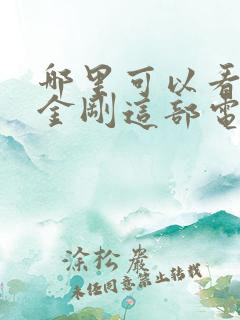 哪里可以看
金剛這部電
涂松巖
未经同意禁止转载